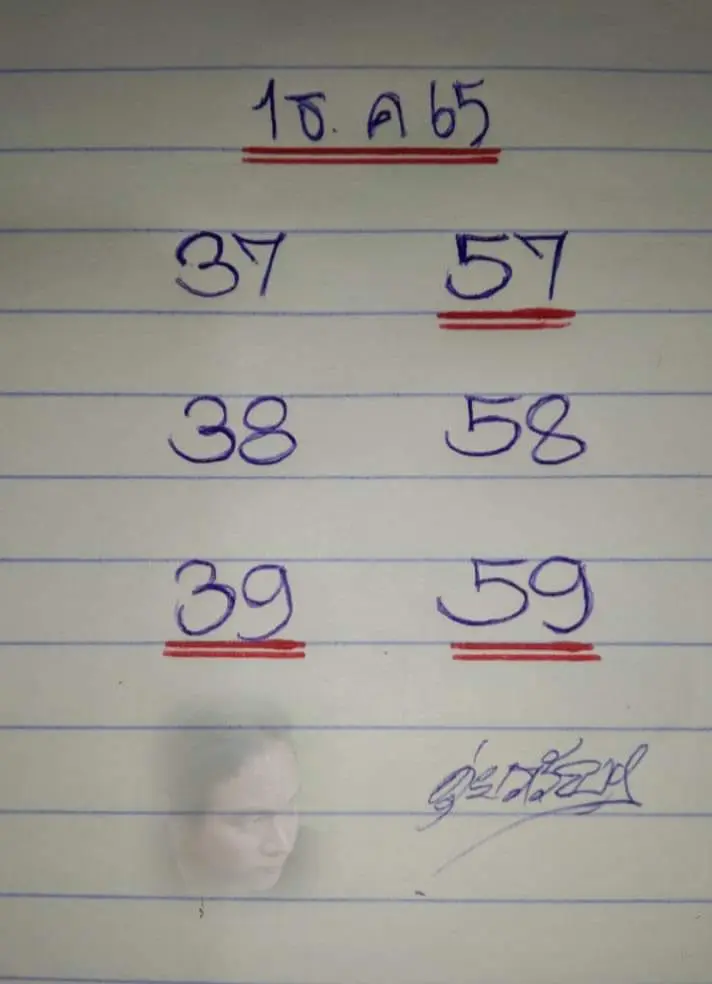 1 ธ. ค 65
37 57
38 58
39 59